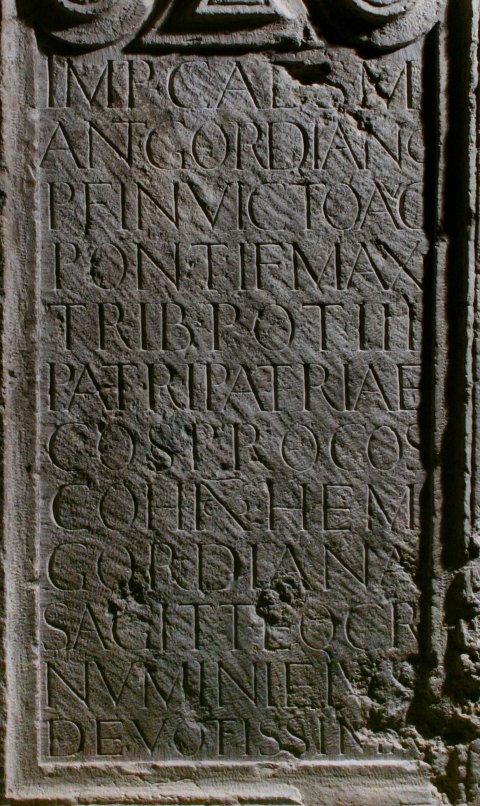 IMP·CAES M
ANT·GORDIANO
P F INVICTO AVG
PONTIF MAX
TRIB·POT III
PATRI PATRIAE
COS PROCOS
COH I HEM
GORDIANA
SAGITT EQ C R
NVMINI EIVS
DEVOTISSIMA